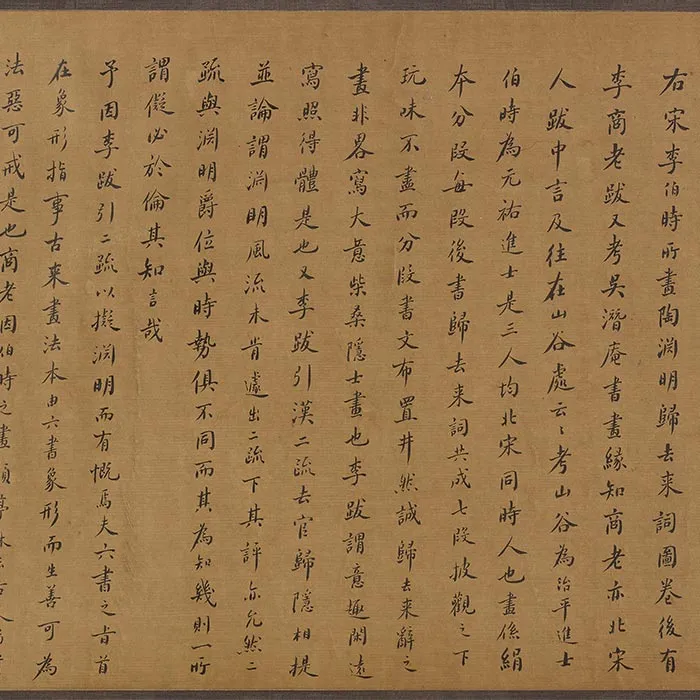 右宋李伯時所畫陶淵明歸去来詞圖卷後有
李商老跋又考吳潛庵書畫緣知商老亦北宋
人跋中言及往在山谷處云〻考山谷為治平進士
伯時為元祐進士是三人均北宋同時人也畫係絹
本分段每段後書歸去来詞共成七段披觀之下
玩味不盡而分段書文布置井然誠歸去来辭之
畫非畧寫大意柴桑隱士畫也李跋謂意趣閑遠
寫照得體是也又李跋引漢二疏去官歸隱相提
並論謂淵明風流未肯遽出二疏下其評亦允然二
疏與淵明爵位與時勢俱不同而其為知幾則一所
謂儗必於倫其知言哉
予因李跋引二疏以擬淵明而有慨焉夫六書之旨首
在象形指事古来畫法本由六書象形而生善可為
法惡可戒是也商老因伯時之畫